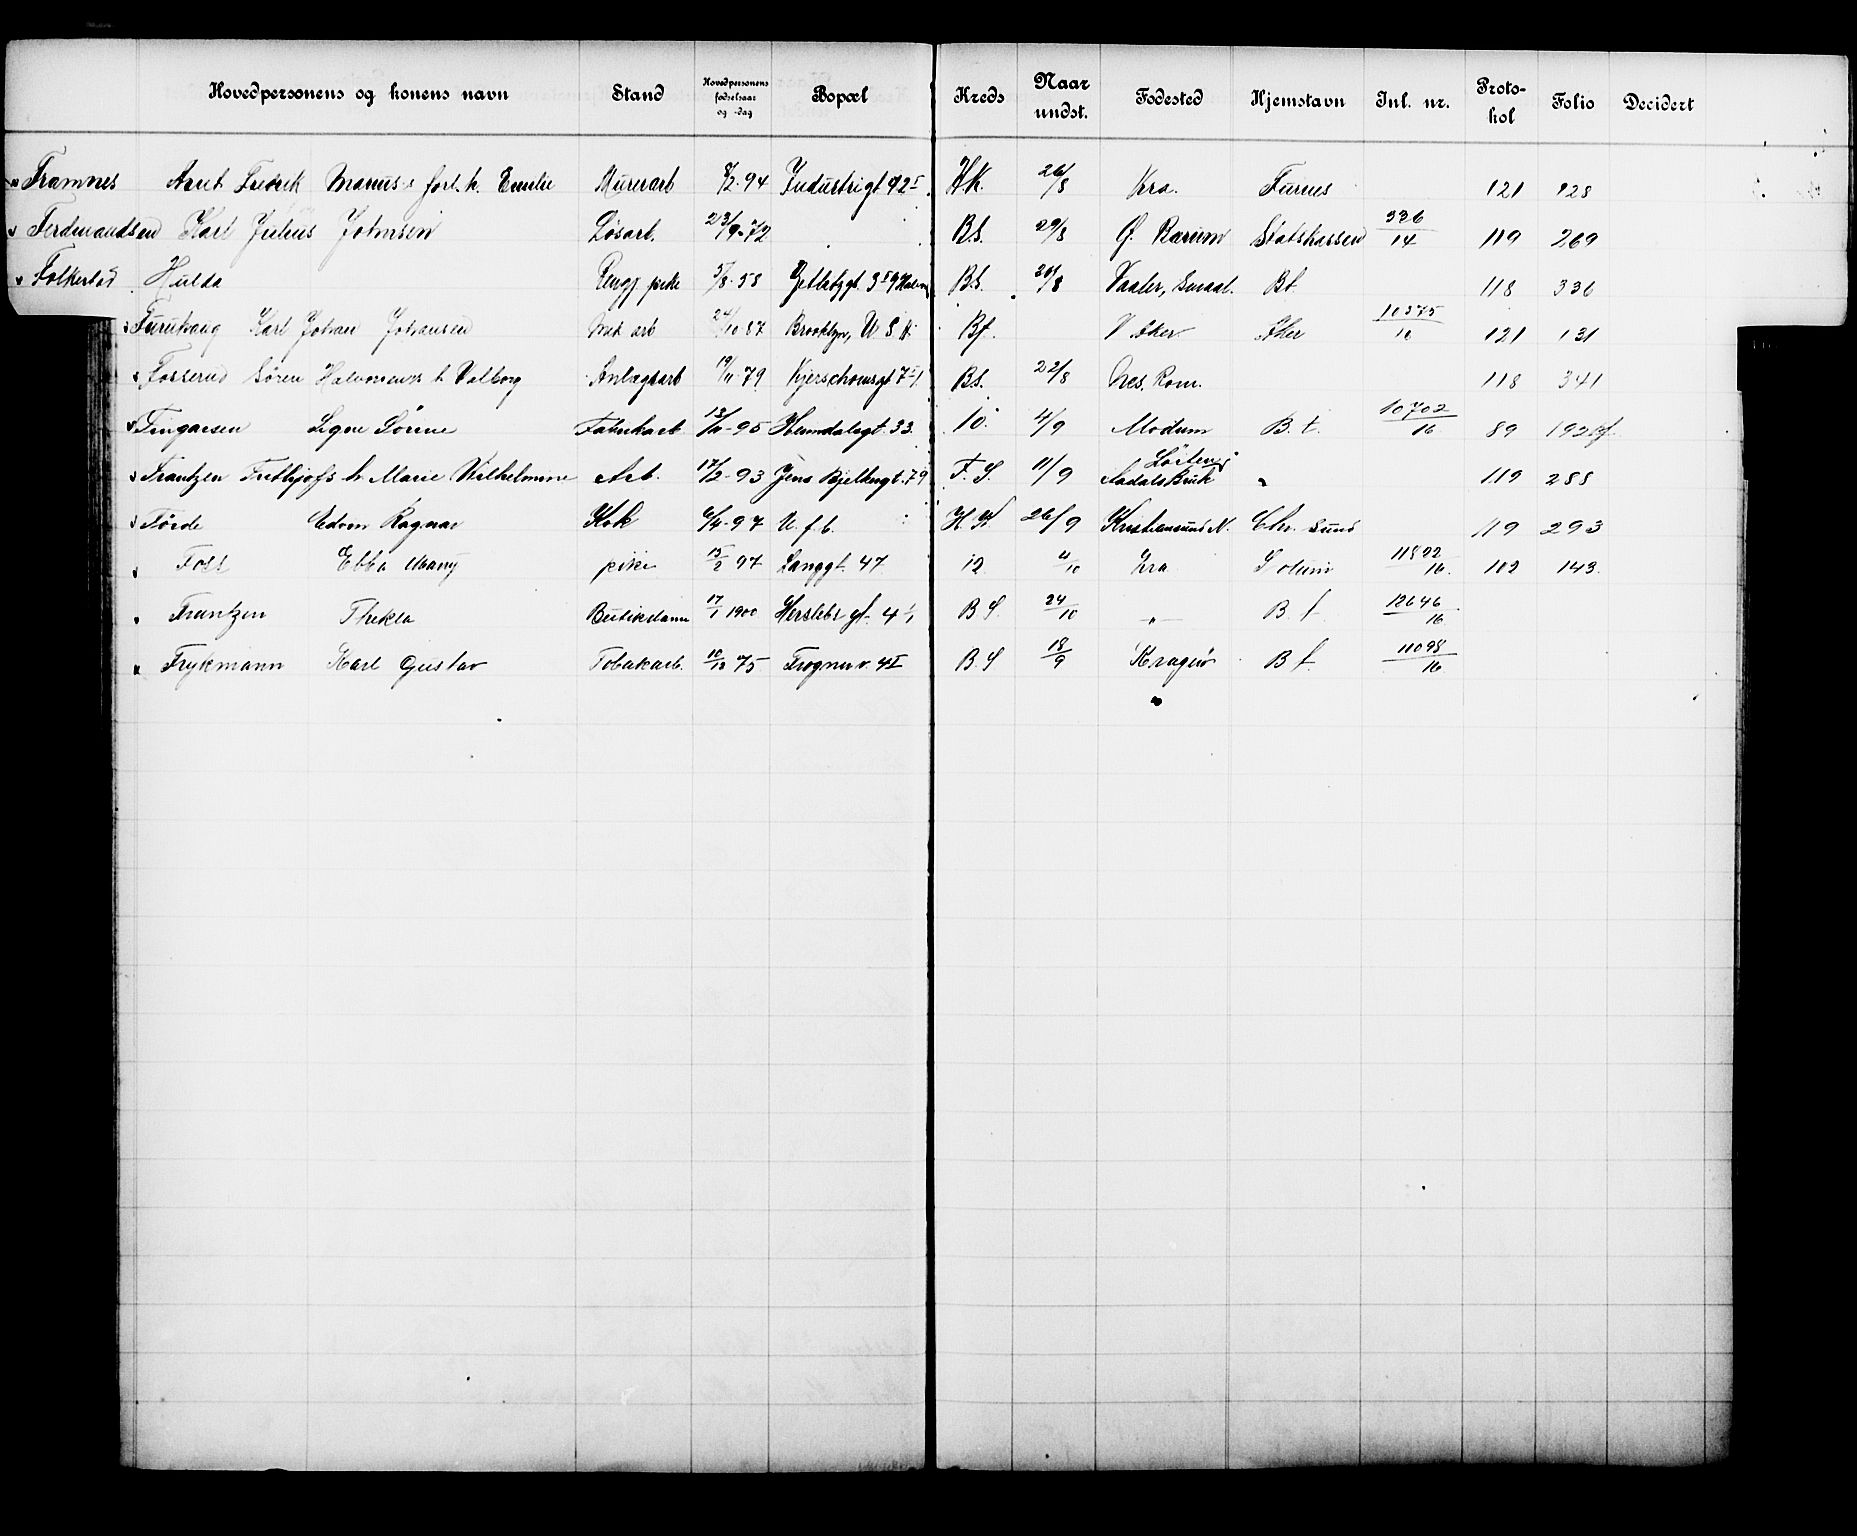 Hovedpersonens og konens navn Stand Hovedpersonens fødselsaar og -dag Bopæl Kreds Naar undst. Fødested Hjemstavn Inl. nr. Proto-kol Folio Decidert
Framnes Fredrik Marius forl. k. Emilie Murerarb 8/2-94 Industrigt 42 I H.K. 26/8 Kra. Furnes 121 128
Ferdinandsen Karl Julius Johnsen Løsarb. 23/9-72 B.S. 29/8 Ø. Statskassen 336/14 119 269
Folkestad Hulda Rengj pike 5/8-58 3 B.S. 29/8 Vaaler, Smaal. Bt 118 336
Furuhaug Karl Johan Johansen Mek arb 24/10 87 Brooklyn, U S A Bf. V Aker Aker 10375/16 121 131
Fosserud Søren Halvorsens k Valborg Anlægsarb 19/11-79 Kjerschowsgt 7 I B.S. 22/8 Nes. Rom. 118 341
Fingarsen Signe Sørine Fabrikarb 13/11-95 Heimdalsgt 33 10. 4/9 Modum B. t. 10702/16 89 192
Frantzen Frithjofs k Marie Vilhelmine Arb. 17/2-93 Jens Bjelkesgt. 79 F. S. 11/9 Aadals Bruk Løiten " 119 288
Førde Edvin Ragnar Kok 6/4-97 U. f. b. H K 26/9 Kristiansund N. Chr. sund 119 293
Foss Ebba Mary pike 15/2 97 Langgt. 47 12 4/10 Kra Solum 11892/16 102 143
Frantzen Thekla Butikdame 17/1 1900 Herslebs gt. 4 I B S 24/10 " B. t. 12646/16
Frykmann Karl Gustav Tobakarb. 10/12 75 Frognerv. 4 I B. S 18/9 Kragerø B t. 11098/16